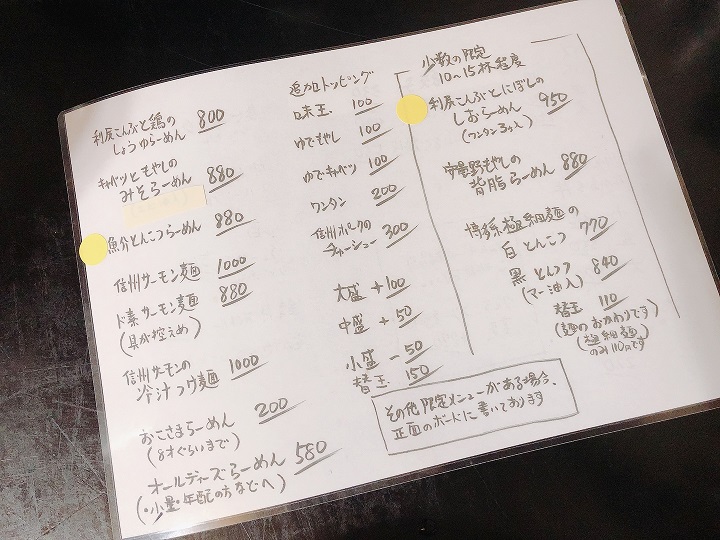 利尻こんぶと鶏の
しょうゆらーめん 800
キャベツともやしの
みそらーめん 880
魚介とんこつらーめん 880
信州サーモン麺 1000
ド素サーモン麺 880
(具が控えめ)
信州サーモンの
冷汁つけ麺 1000
おこさまらーめん 200
(8才ぐらいまで)
オールディーズらーめん 580
(・小量・年配の方などへ)
追加トッピング
味玉 100
ゆでもやし 100
ゆでキャベツ 100
ワンタン 200
信州ポークの
チャーシュー 300
大盛 +100
中盛 +50
小盛 -50
替玉 150
少数の限定
10〜15杯程度
利尻こんぶとにぼしの
しおらーめん 950
(ワンタン3ヶ入)
安曇野もやしの
背脂らーめん 880
博多系極細麺の
白とんこつ 770
黒とんこつ 840
(マー油入)
替玉 110
(麺のおかわりです)
(極細麺)
のみ110円です
その他限定メニューがある場合、
正面のボードに書いております